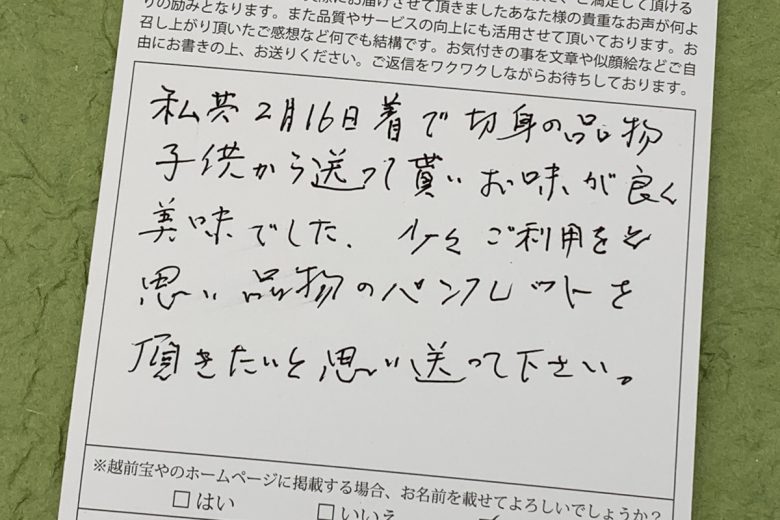 届けさせて頂きましたあなた様の貴重なお声が何よ
りの励みとなります。また品質やサービスの向上にも活用させて頂いております。お
召し上がり頂いたご感想など何でも結構です。お気付きの事を文章や似顔絵などご自
由にお書きの上、お送りください。ご返信をワクワクしながらお待ちしております。
私共2月16日着で切身の品物
子供から送って貰いお味が良く
美味でした、少々ご利用をと
思い品物のパンフレットを
頂きたいと思い送って下さい。
※越前宝やのホームページに掲載する場合、お名前を載せてよろしいでしょうか?
□はい
□いいえ